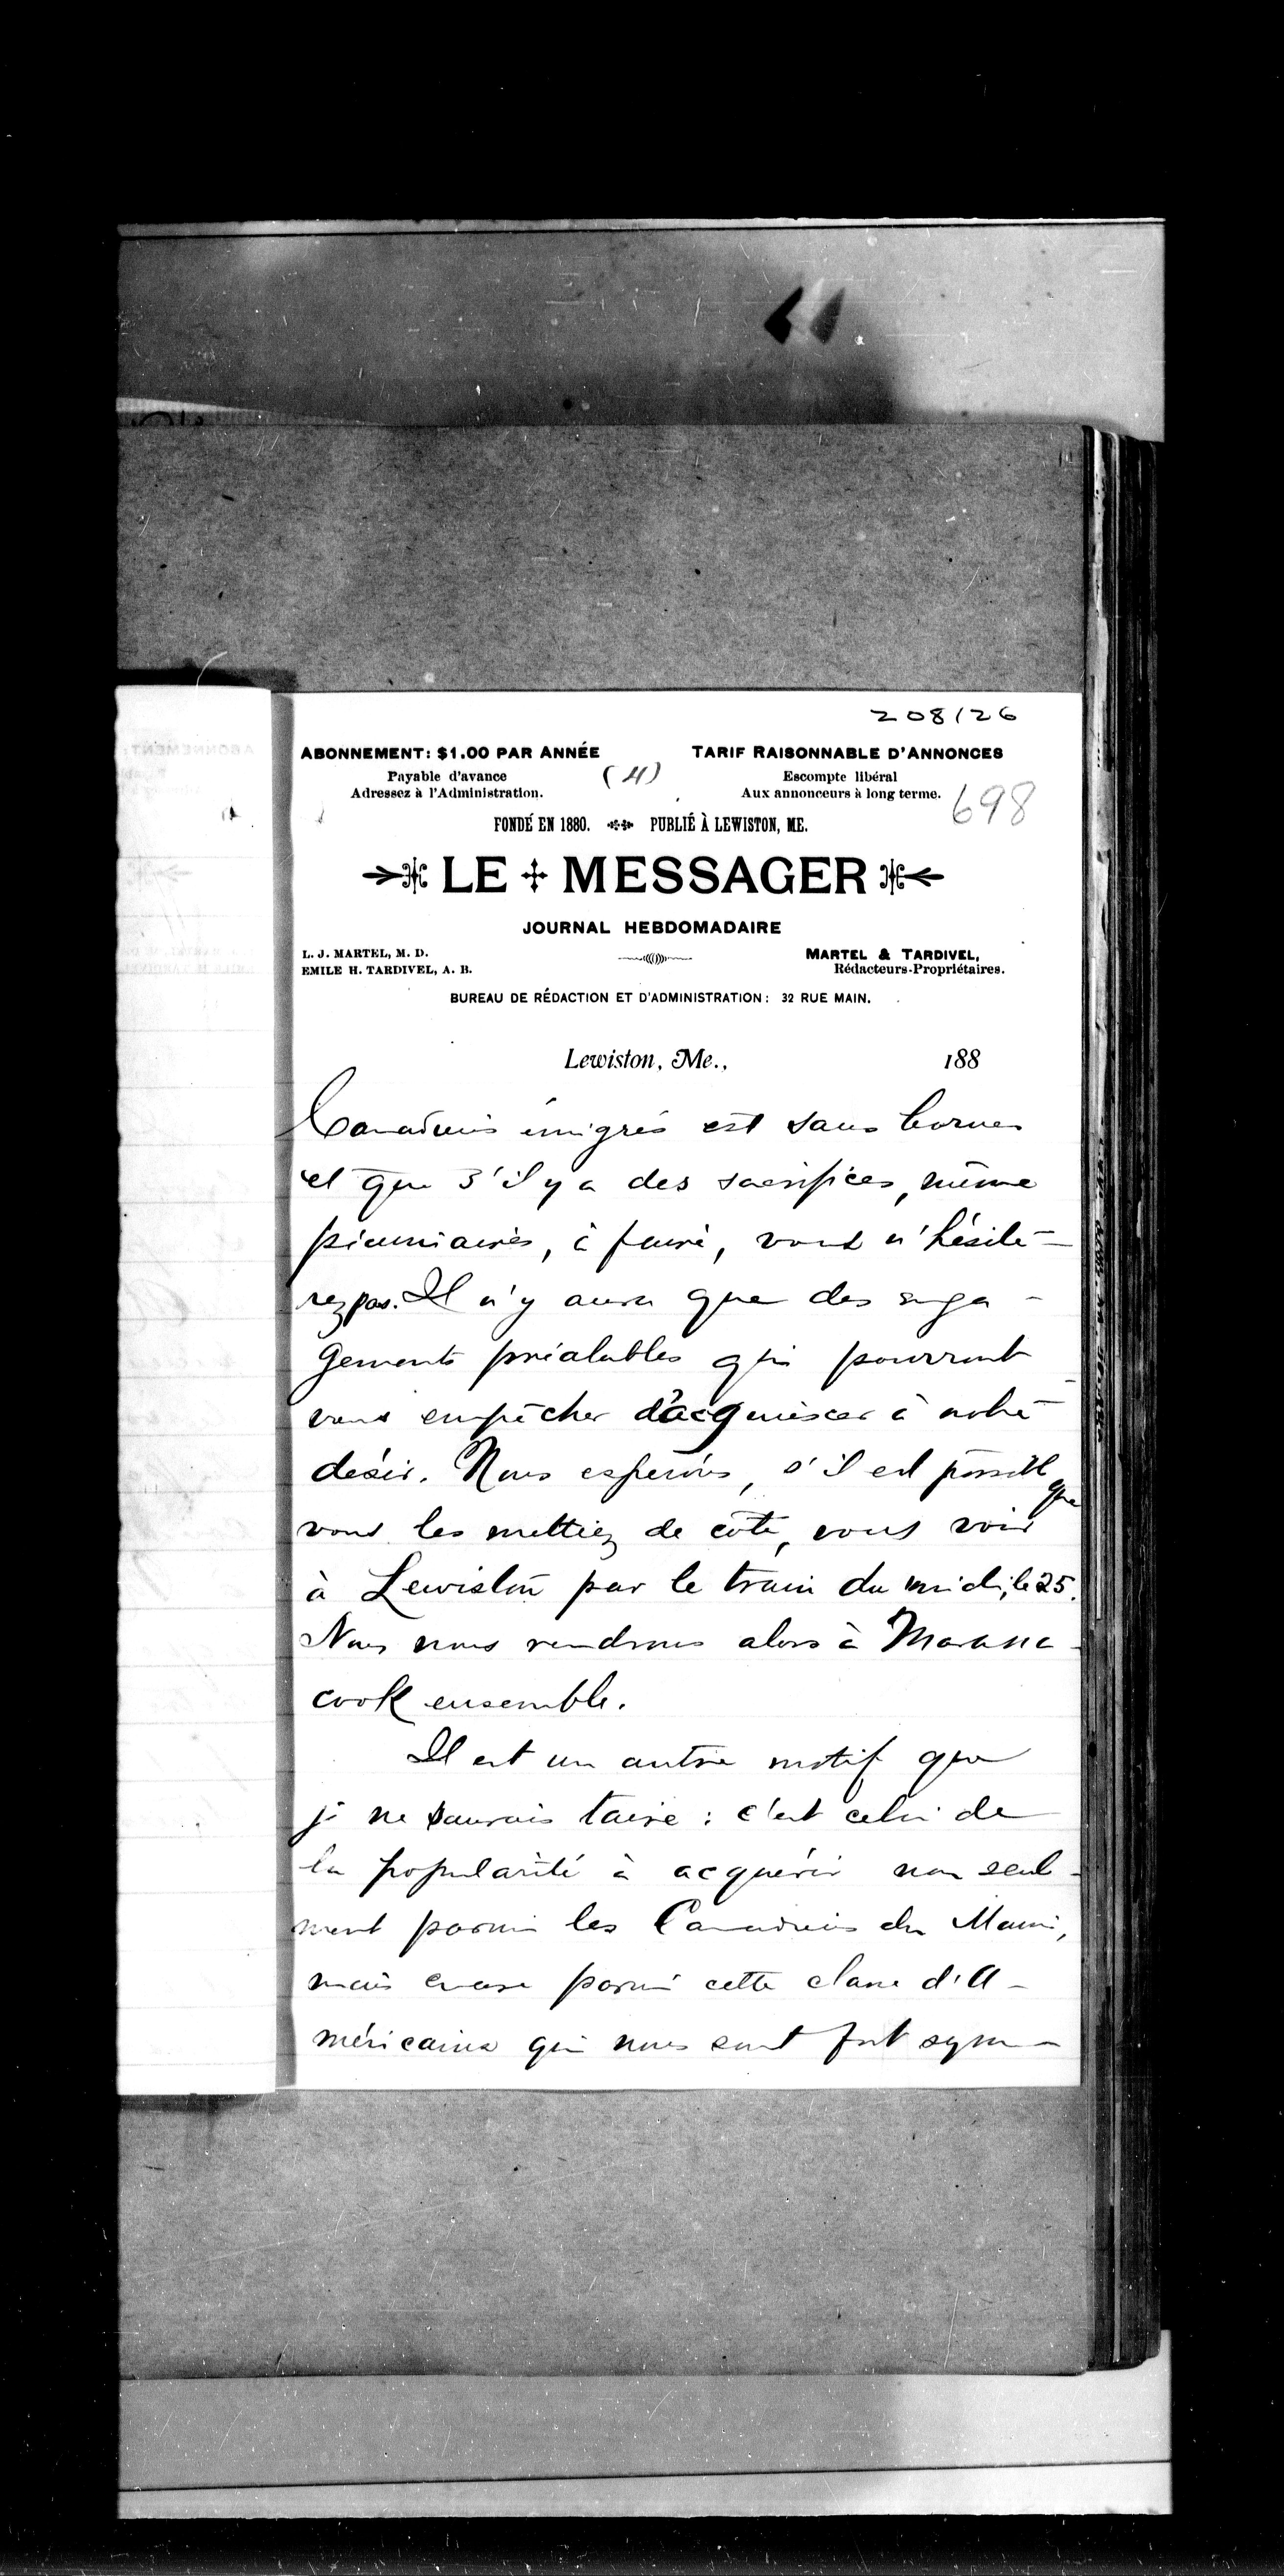 208126
ABONNEMENT: $1.00 PAR ANNÉE
Payable d'avance
Adressez à l'Administration.
(4)
TARIF RAISONNABLE D'ANNONCES
Escompte libéral
Aux annonceurs à long terme.
698
FONDÉ EN 1880. PUBLIÉ À LEWISTON, ME.
LE MESSAGER
JOURNAL HEBDOMADAIRE
L. J. MARTEL, M. D.
EMILE H. TARDIVEL, A. B.
MARTEL & TARDIVEL,
Rédacteurs-Propriétaires.
BUREAU DE RÉDACTION ET D'ADMINISTRATION: 32 RUE MAIN.
Lewiston, Me., 188
Canadiens émigrés est sans bornes
et que s'il y a des sacrifices, même
pécuniaires, à faire, vous n'hésite-
rez pas. Il n'y aura que des enga-
gements préalables qui pourront
vous empêcher d'acquiescer à notre
désir. Nous espérons, s'il est possible que
vous les mettiez de côté, vous voir
à Lewiston par le train du midi, le 25.
Nous nous rendrons alors à Marana-
cook ensemble.
Il est un autre motif que
je ne saurais taire : c'est celui de
la popularité à acquérir non seul-
ment parmi les Canadiens du Maine,
mais encore parmi cette classe d'A-
méricains qui nous sont fort sym-